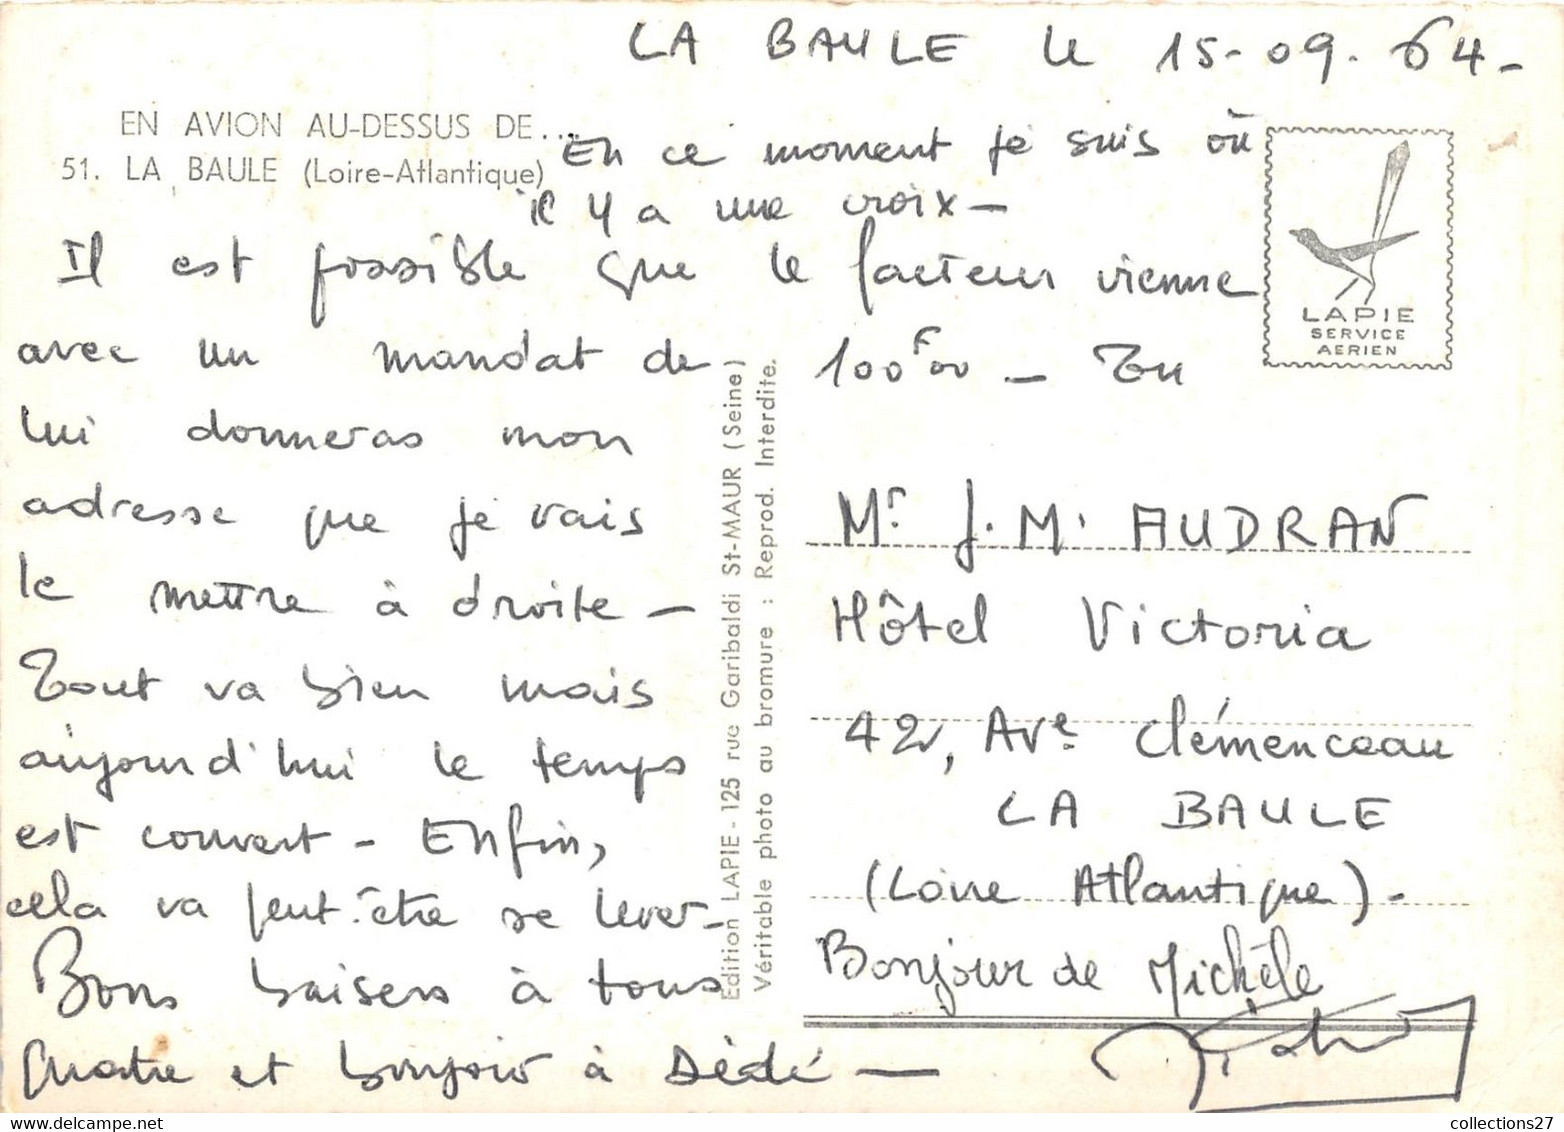 LA BAULE le 15-09.64-
EN AVION AU-DESSUS DE...
51. LA BAULE (Loire-Atlantique)
En ce moment je suis où
il y a une croix-
Il est possible que le facteur vienne
avec un mandat de 100F00 - Tu
lui donneras mon
adresse que je vais
le mettre à droite-
Tout va bien mais
aujourd'hui le temps
est couvert - Enfin,
cela va peut-être se lever-
Bons baisers à tous
quatre et bonjour à Dédé-
Edition LAPIE - 125 rue Garibaldi St-MAUR (Seine)
Véritable photo au bromure : Reprod. Interdite.
LAPIE
SERVICE
AERIEN
Mr. J.M. AUDRAN
Hôtel Victoria
42, Ave. Clémenceau
LA BAULE
(Loire Atlantique)-
Bonjour de Michèle
collections27